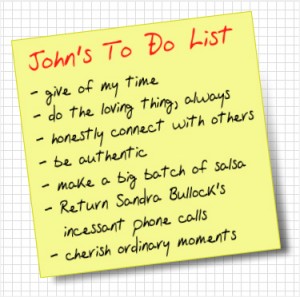 John's To Do List
- give of my time
- do the loving thing, always
- honestly connect with others
- be authentic
- make a big batch of salsa
- Return Sandra Bullock's
incessant phone calls
- cherish ordinary moments